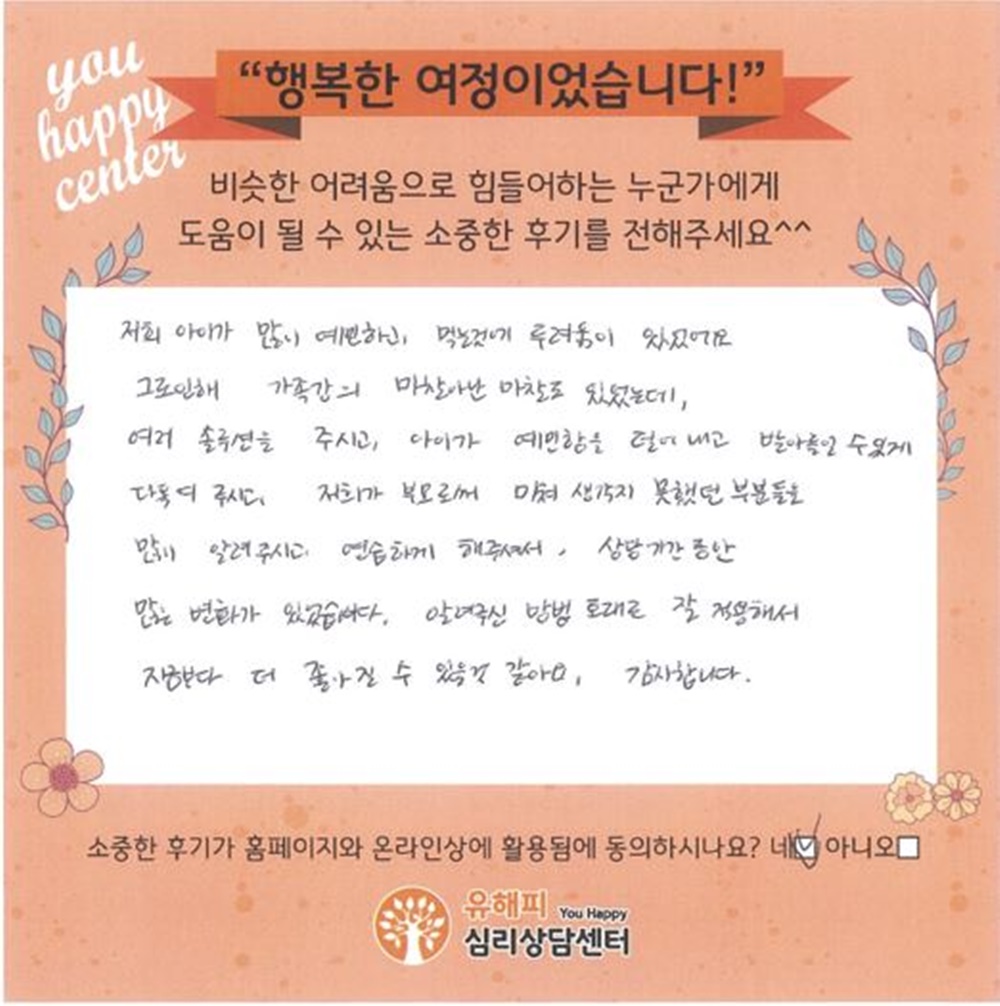 you
happy
center
“행복한 여정이었습니다!”
비슷한 어려움으로 힘들어하는 누군가에게
도움이 될 수 있는 소중한 후기를 전해주세요^^
저희 아이가 많이 예민하고, 먹는것에 두려움이 있었어요
그로인해 가족간의 마찰아닌 마찰도 있었는데,
여러 솔루션을 주시고, 아이가 예민함을 덜어 내고 받아들일 수있게
다독여 주시고, 저희가 부모로써 미쳐 생각지 못했던 부분들을
많이 알려주시고 연습하게 해주셔서, 상담기간 동안
많은 변화가 있었습니다. 알려주신 방법 토대로 잘 적용해서
지금보다 더 좋아질 수 있을것 같아요, 감사합니다.
소중한 후기가 홈페이지와 온라인상에 활용됨에 동의하시나요? 네 아니오
유해피 You Happy
심리상담센터